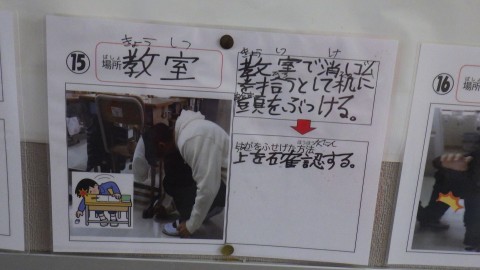 ⑮
きょうしつ
場所 教室
ばしょ
きょうしつ け
教室で消しゴム
を拾うとして机に
頭をぶっける。
けがをふせげた方法
上を確認する。
⑯
場所